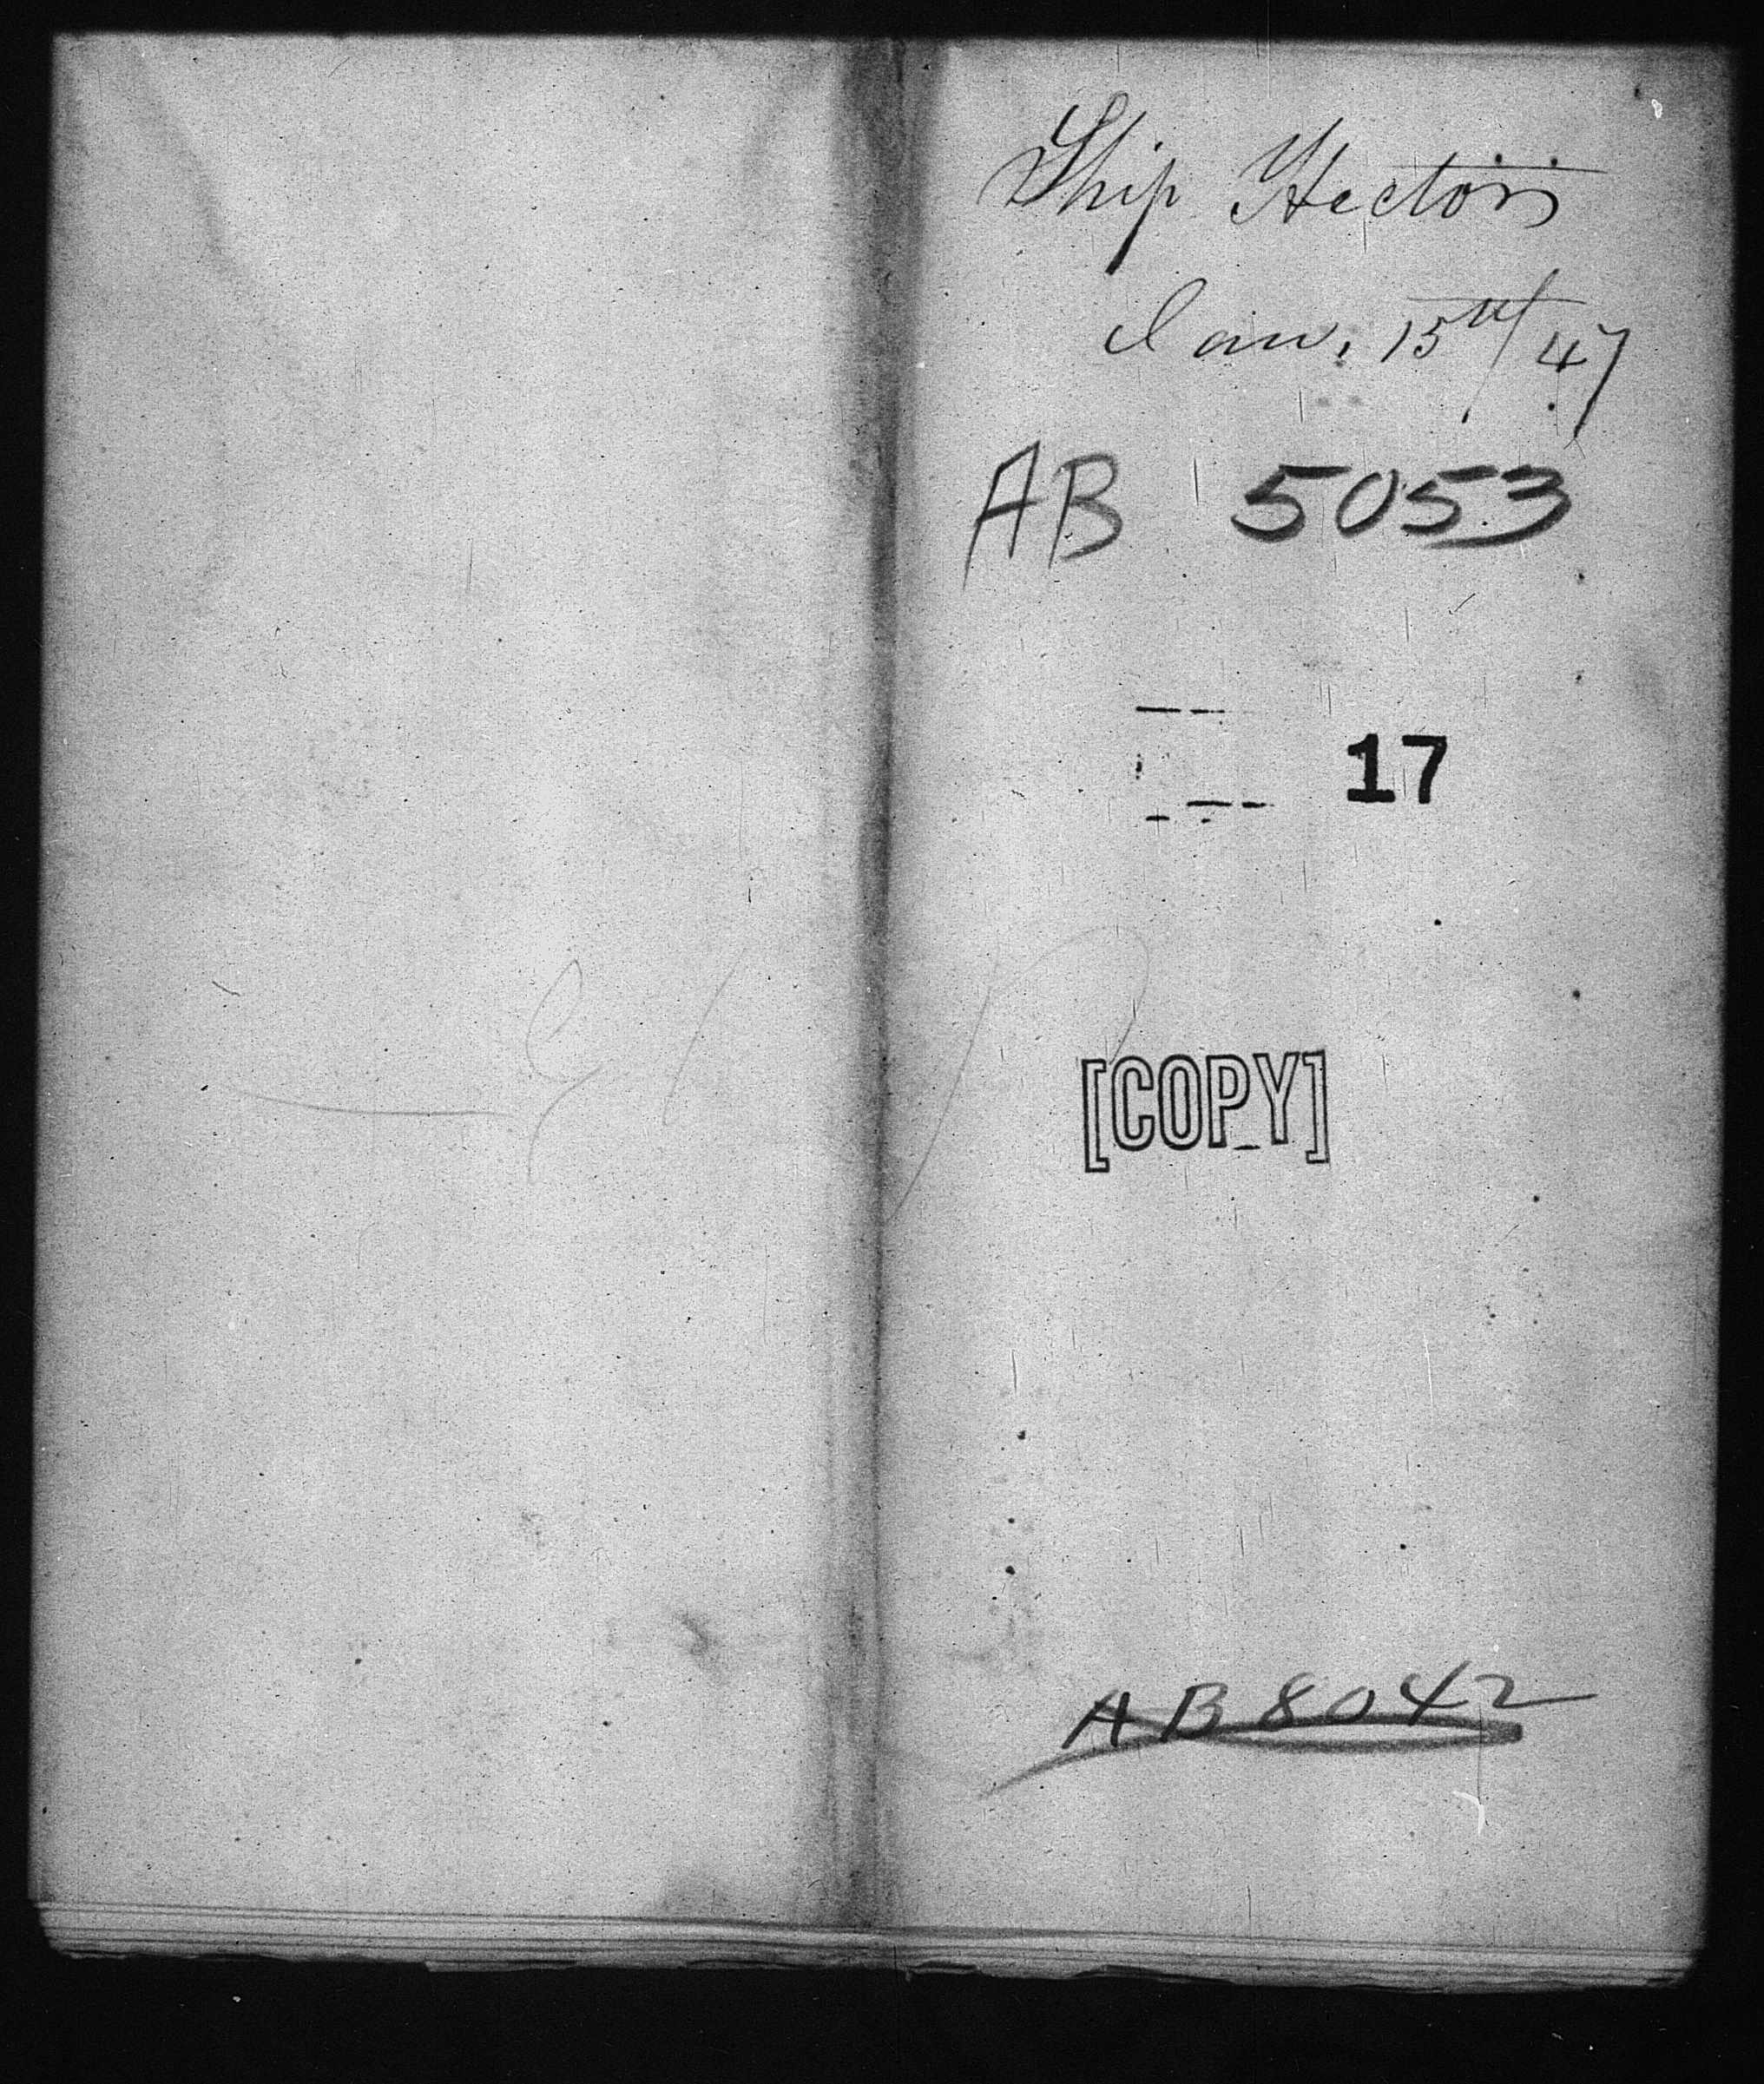 Ship Hector
Jan. 15th/47
AB 5053
17
[COPY]
AB 8042